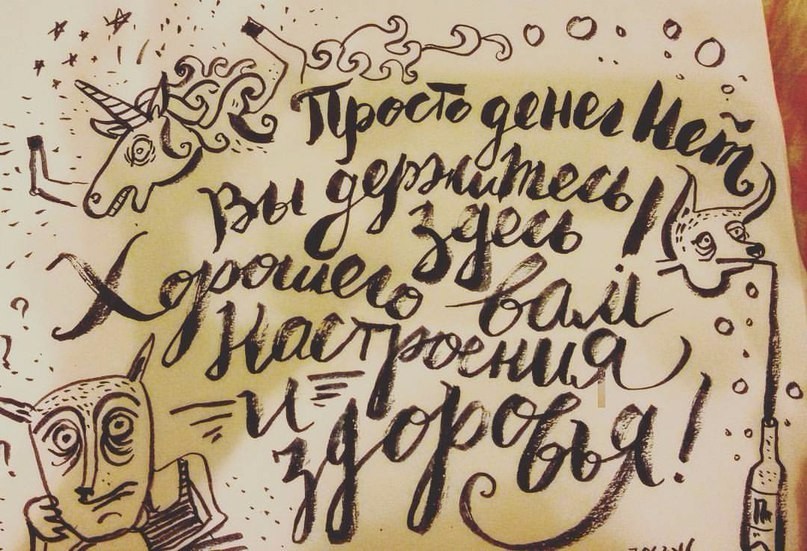 Просто денег нет
Вы держитесь
здесь!
Хорошего вам
настроения
и
здоровья!